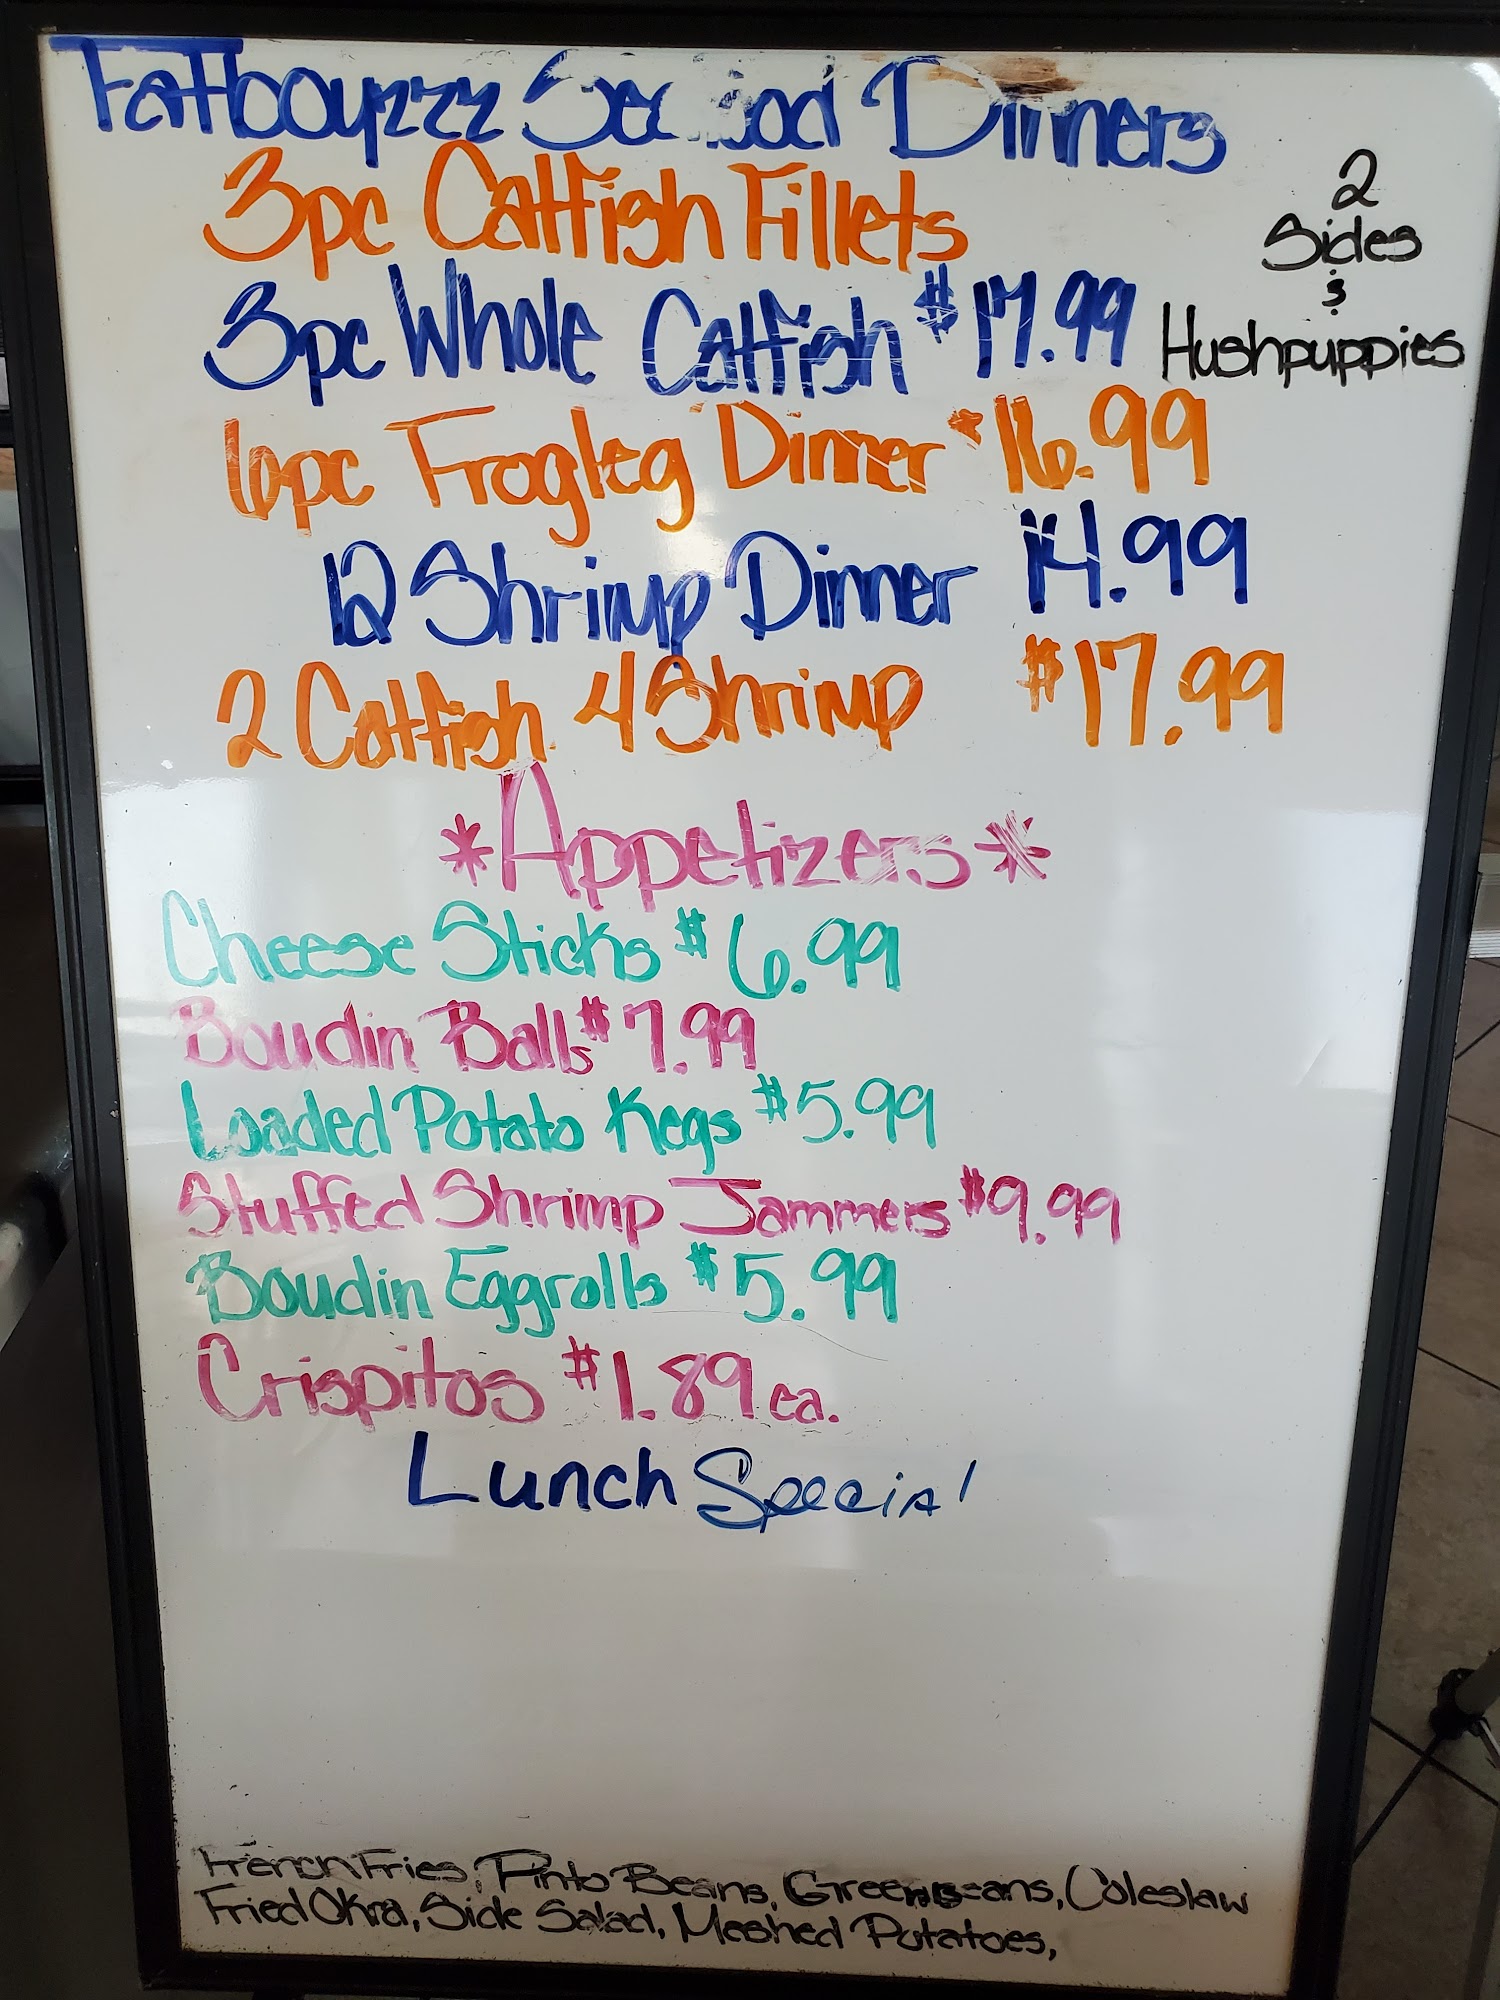 Fatboyzzz Seafood Dinners
3pc Catfish Fillets
3pc Whole Catfish $17.99
2
Sides
&
Hushpuppies
6pc Frogleg Dinner $16.99
12 Shrimp Dinner 14.99
2 Catfish 4 Shrimp $17.99
*Appetizers*
Cheese Sticks $6.99
Boudin Balls $7.99
Loaded Potato Kegs $5.99
Stuffed Shrimp Jammers $9.99
Boudin Eggrolls $5.99
Crispitos $1.89 ea.
Lunch Special
French Fries, Pinto Beans, Green Beans, Coleslaw
Fried Okra, Side Salad, Mashed Potatoes,